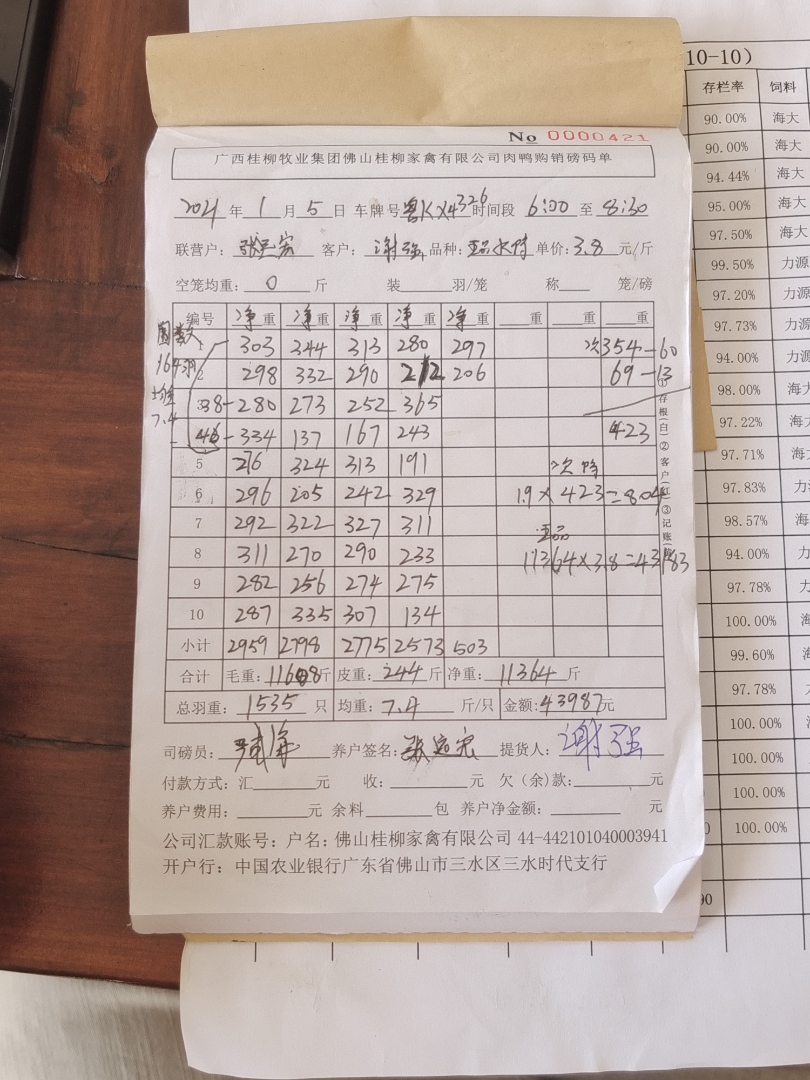 10-10)
存栏率 饲料
90.00% 海大
90.00% 海大
94.44% 海大
95.00% 海大
97.50% 海大
99.50% 力源
97.20% 力源
97.73% 力源
94.00% 力源
98.00% 海大
97.22% 海大
97.71% 海
97.83% 力源
98.57% 海大
94.00% 力
97.78% 力
100.00% 海
99.60% 海
97.78% 力
100.00%
100.00%
100.00%
100.00%
No 0000421
广西桂柳牧业集团佛山桂柳家禽有限公司肉鸭购销磅码单
2021 年 1 月 5 日 车牌号 粤KX4326 时间段 6:00 至 8:30
联营户: 张远宏 客户: 谢强 品种: 单价: 3.8 元/斤
空笼均重: 0 斤 装 羽/笼 称 笼/磅
编号 净重 净重 净重 净重 净重 重 重 重
1 303 344 313 280 297 次354-60
2 298 332 290 212 206 69-13
38- 280 273 252 365
46- 334 137 167 243 423
5 276 324 313 191
6 296 205 242 329 1.9×423=804
7 292 322 327 311
8 311 270 290 233 11364×3.8=43183
9 282 256 274 275
10 287 335 307 134
小计 2959 2798 2775 2573 503
合计 毛重: 11608斤 皮重: 244 斤 净重: 11364 斤
总羽重: 1535 只 均重: 7.4 斤/只 金额: 43987元
164羽
7.4
①存根(白)②客户(红)③记账(
司磅员: 养户签名: 张远宏 提货人: 谢强
付款方式: 汇 元 收: 元 欠(余)款: 元
养户费用: 元 余料 包 养户净金额: 元
公司汇款账号: 户名: 佛山桂柳家禽有限公司 44-442101040003941
开户行: 中国农业银行广东省佛山市三水区三水时代支行